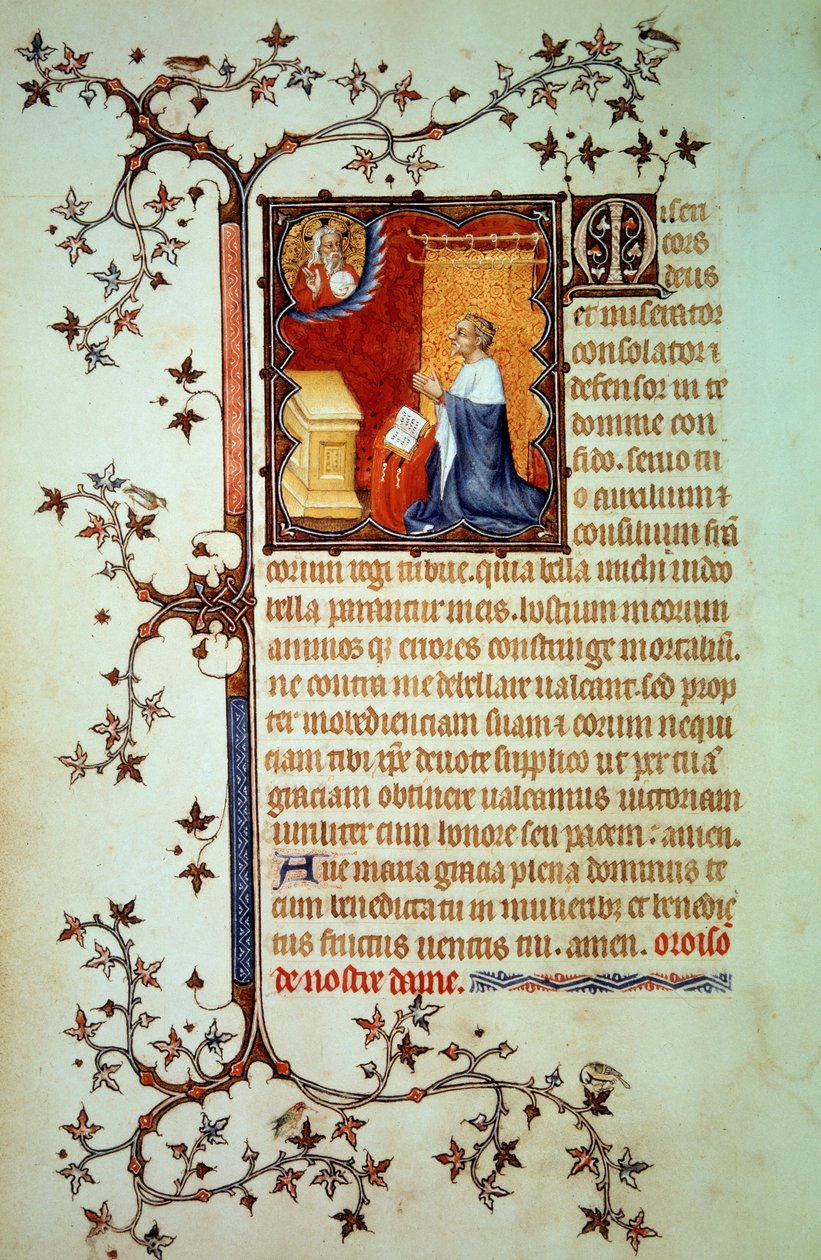 Miseri
cors
deus
et miserator
consolator ⁊
defensor in te
domine con
fido. seruo tu
o auxilium ⁊
consilium sanc̄
torum regi tribue. quia bella michi uideo
bella parantur meis. hostium meorum
animos qȝ errores constringe mortaliū.
ne contra me debellare ualeant. sed prop
ter inobedienciam suam ⁊ eorum nequi
ciam tibi xp̄e deuote supplico ut per tuā
graciam obtinere ualeamus uictoriam
umiliter cum honore seu pacem: amen.
Aue maria gracia plena dominus te
cum benedicta tu in mulieribȝ et benedic
tus fructus uentris tui. amen. oroisō
de nostre dame.